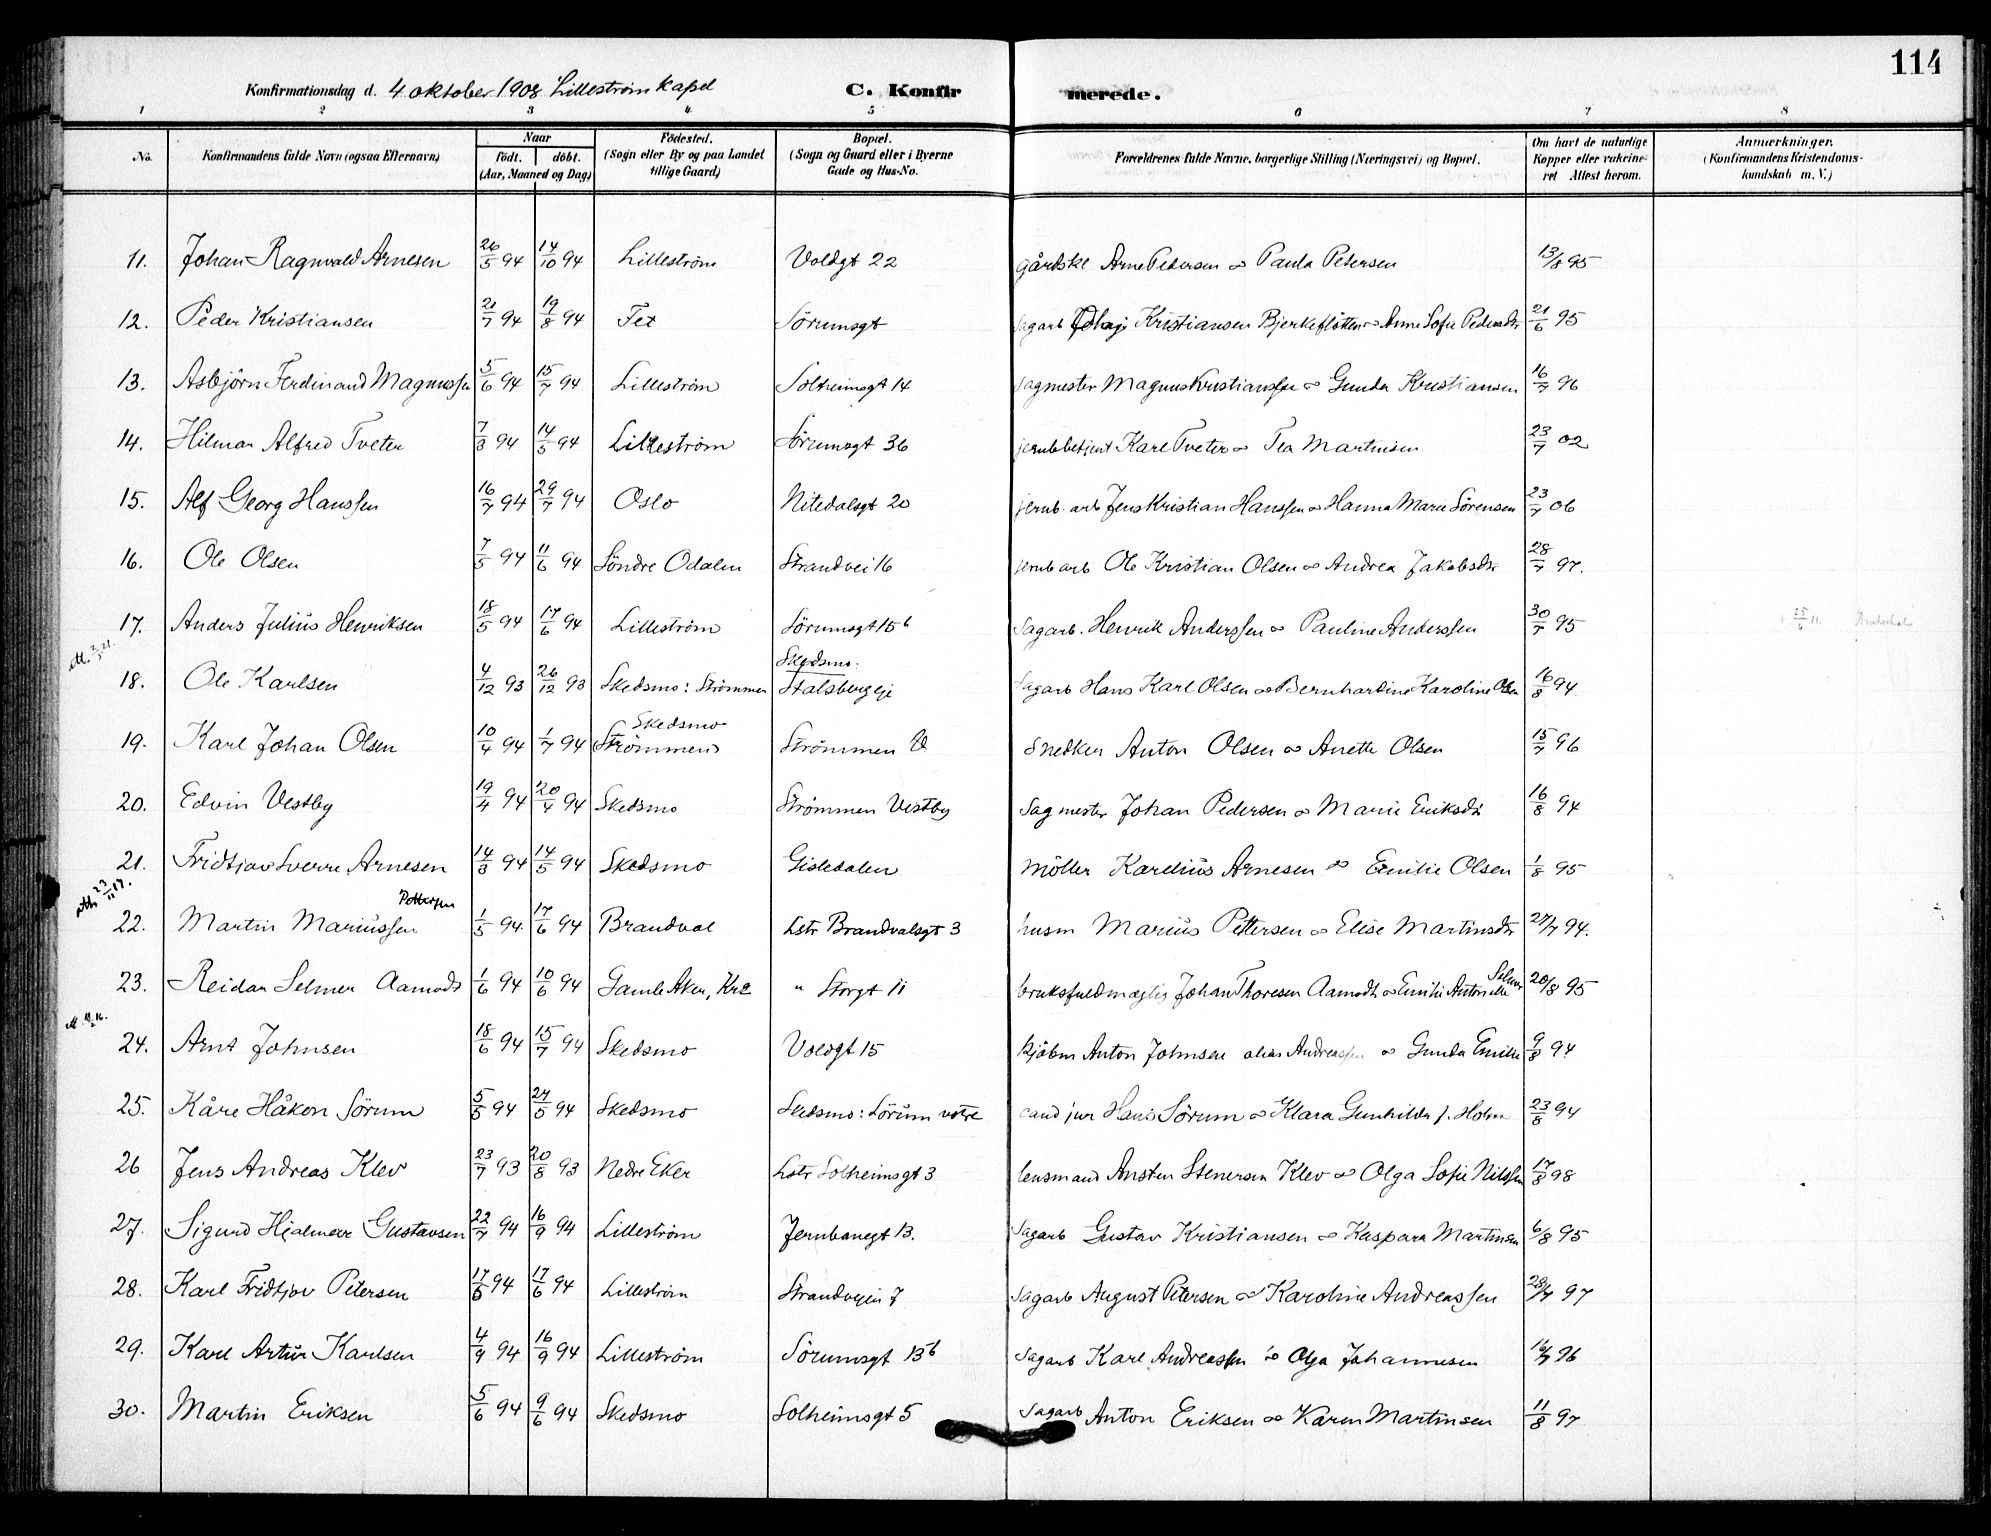 114
Konfirmationsdag d. 4 oktober 1908 Lilleström kapel C. Konfirmerede.
1 2 3 4 5 6 7 8
No. Konfirmandens fulde Navn (ogsaa Efternavn) Naar født. døbt. (Aar, Maaned og Dag) Födested. (Sogn eller By og paa Landet tillige Gaard) Bopæl. (Sogn og Gaard eller i Byerne Gade og Hus-No. Forældrenes fulde Navne, borgerlige Stilling (Næringsvei) og Bopæl. Om havt de naturlige Kopper eller vakcineret Attest herom. Anmærkninger. (Konfirmandens Kristendomskundskab m. V.)
11. Johan Ragnvald Arnesen 26/5 94 14/10 94 Lilleström Voldgt 22 gårdskl Arne Pedersen ∞ Paula Petersen 13/8 95
12. Peder Kristiansen 21/7 94 19/8 94 Fet Sörumsgt sagarb Kristiansen Bjerkeflötten ∞ Anne Sofie Pedersdtr 21/6 95
13. Asbjörn Ferdinand Magnussen 5/6 94 15/7 94 Lilleström Solheimsgt 14 sagmester Magnus Kristianssen ∞ Gunda Kristiansen 16/7 96
14. Hilmar Alfred Tveter 7/3 94 14/5 94 Lilleström Sörumsgt 36 jernbbetjent Karl Tveter ∞ Tea Martinsen 23/7 02
15. Alf Georg Hanssen 16/7 94 29/7 94 Oslo Nitedalsgt 20 jernb. arb Jens Kristian Hanssen ∞ Hanna Marie Sörensen 23/7 06
16. Ole Olsen 7/5 94 11/6 94 Söndre Odalen Strandvei 16 jernb arb Ole Kristian Olsen ∞ Andrea Jakobsdtr 28/7 97.
17. Anders Julius Henriksen 18/5 94 17/6 94 Lilleström Sörumsgt 15 b Sagarb. Henrik Anderssen ∞ Pauline Anderssen 30/7 95 + 25/6 11.
18. Ole Karlsen 4/12 93 26/12 93 Skedsmo: Strömmen Skedsmo: Stalsberg eje Sagarb Hans Karl Olsen ∞ Bernhardine Karoline Olsen 16/8 94
19. Karl Johan Olsen 10/4 94 1/7 94 Skedsmo Strömmen Strömmen V Snedker Anton Olsen ∞ Anette Olsen 15/7 96
20. Edvin Vestby 19/4 94 20/4 94 Skedsmo Strömmen Vestby Sagmester Johan Pedersen ∞ Marie Eriksdtr 16/8 94
21. Fridtjov Sverre Arnesen 14/3 94 14/5 94 Skedsmo Gisledalen Möller Karelius Arnesen ∞ Emilie Olsen 1/8 95
att. 23/11 17.
22. Martin Mariussen Pettersen 1/5 94 17/6 94 Brandval Lstr Brandvalsgt 3 husm Marius Pettersen ∞ Elise Martinsdtr 27/7 94.
23. Reidar Selmer Aamodt 1/6 94 10/6 94 Gamle Aker, Kra " Storgt 11 bruksfuldmægtig Johan Thoresen Aamodt ∞ Emilie Antonette Selmer 20/8 95
24. Arnt Johnsen 18/6 94 15/7 94 Skedsmo Voldgt 15 kjöbm Anton Johnsen alias Andreassen ∞ Gunda Emilie 9/8 94
25. Kåre Håkon Sörum 5/5 94 27/5 94 Skedsmo Skedsmo: Sörum vstre cand jur Hans Sörum ∞ Klara Gunhilda f. Holm 23/8 94
26 Jens Andreas Klev 23/7 93 20/8 93 Nedre Eker Lstr Solheimsgt 3 lensmand Ansten Stenersen Klev ∞ Olga Sofie Nilssen 17/8 98
27. Sigurd Hjalmar Gustavsen 22/7 94 16/9 94 Lilleström Jernbanegt 13. Sagarb Gustav Kristiansen ∞ Kaspara Martinsen 6/8 95
28. Karl Fridtjov Petersen 17/5 94 17/6 94 Lilleström Strandvejen 7 Sagarb August Petersen ∞ Karoline Andreassen 28/7 97
29. Karl Artur Karlsen 4/9 94 16/9 94 Lilleström Sörumsgt 13 b Sagarb Karl Andreassen ∞ Olga Johannesen 14/7 96
30. Martin Eriksen 5/6 94 9/6 94 Skedsmo Solheimsgt 5 Sagarb Anton Eriksen ∞ Karen Martinsen 11/8 97